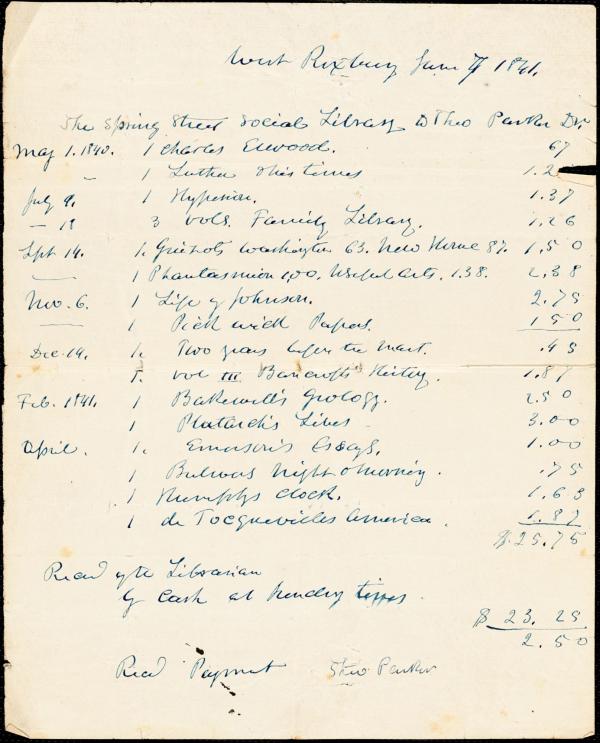 West Roxbury June 7 1841.
The Spring Street Social Library To Theo Parker Dr.
May 1. 1840. 1 Charles Elwood. 67
" 1 Luther & his times 1.2
July 9. 1 Hyperion. 1.37
— 18 3 vols. Family Library. 1.26
Sept 14. 1. Guizots Washington 63. New Home 87. 1.50
— 1 Phantasmion 1,00. Useful Arts. 1.38. 2.38
Nov. 6. 1 Life of Johnson. 2.75
— 1 Pickwick Papers. 1 50
Dec. 14. 1. Two years before the Mast. .45
1. vol III Bancroft's History. 1.87
Feb. 1841. 1 Bakewell's Geology. 2.50
1 Plutarch's Lives 3.00
April. 1. Emerson's Essays. 1.00
1 Bulwers Night & Morning. .75
1 Humphys Clock. 1.63
1 de Tocquevilles America. 1.87
$25.75
Recd of the Librarian
of Cash at sundry times.
$ 23.25
2.50
Recd Payment Theo Parker